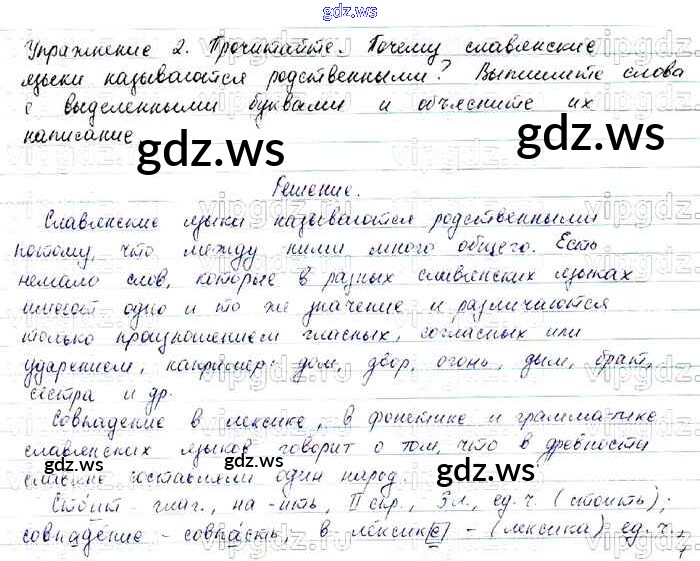 gdz.ws
Упражнение 2. Прочитайте. Почему славянские
языки называются родственными? Выпишите слова
с выделенными буквами и объясните их
написание
gdz.ws gdz.ws
Решение.
Славянские языки называются родственными
потому, что между ними много общего. Есть
немало слов, которые в разных славянских языках
имеют одно и то же значение и различаются
только произношением гласных, согласных или
ударением, например: дом, двор, огонь, дым, брат,
сестра и др.
Совпадение в лексике, в фонетике и грамматике
славянских языков говорит о том, что в древности
славяне составляли один народ.
gdz.ws gdz.ws gdz.ws
Стоит - глаг., на -ить, II спр., 3 л., ед. ч. (стоить);
совпадение - совпасть, в лексик[е] - (лексика) ед. ч.,